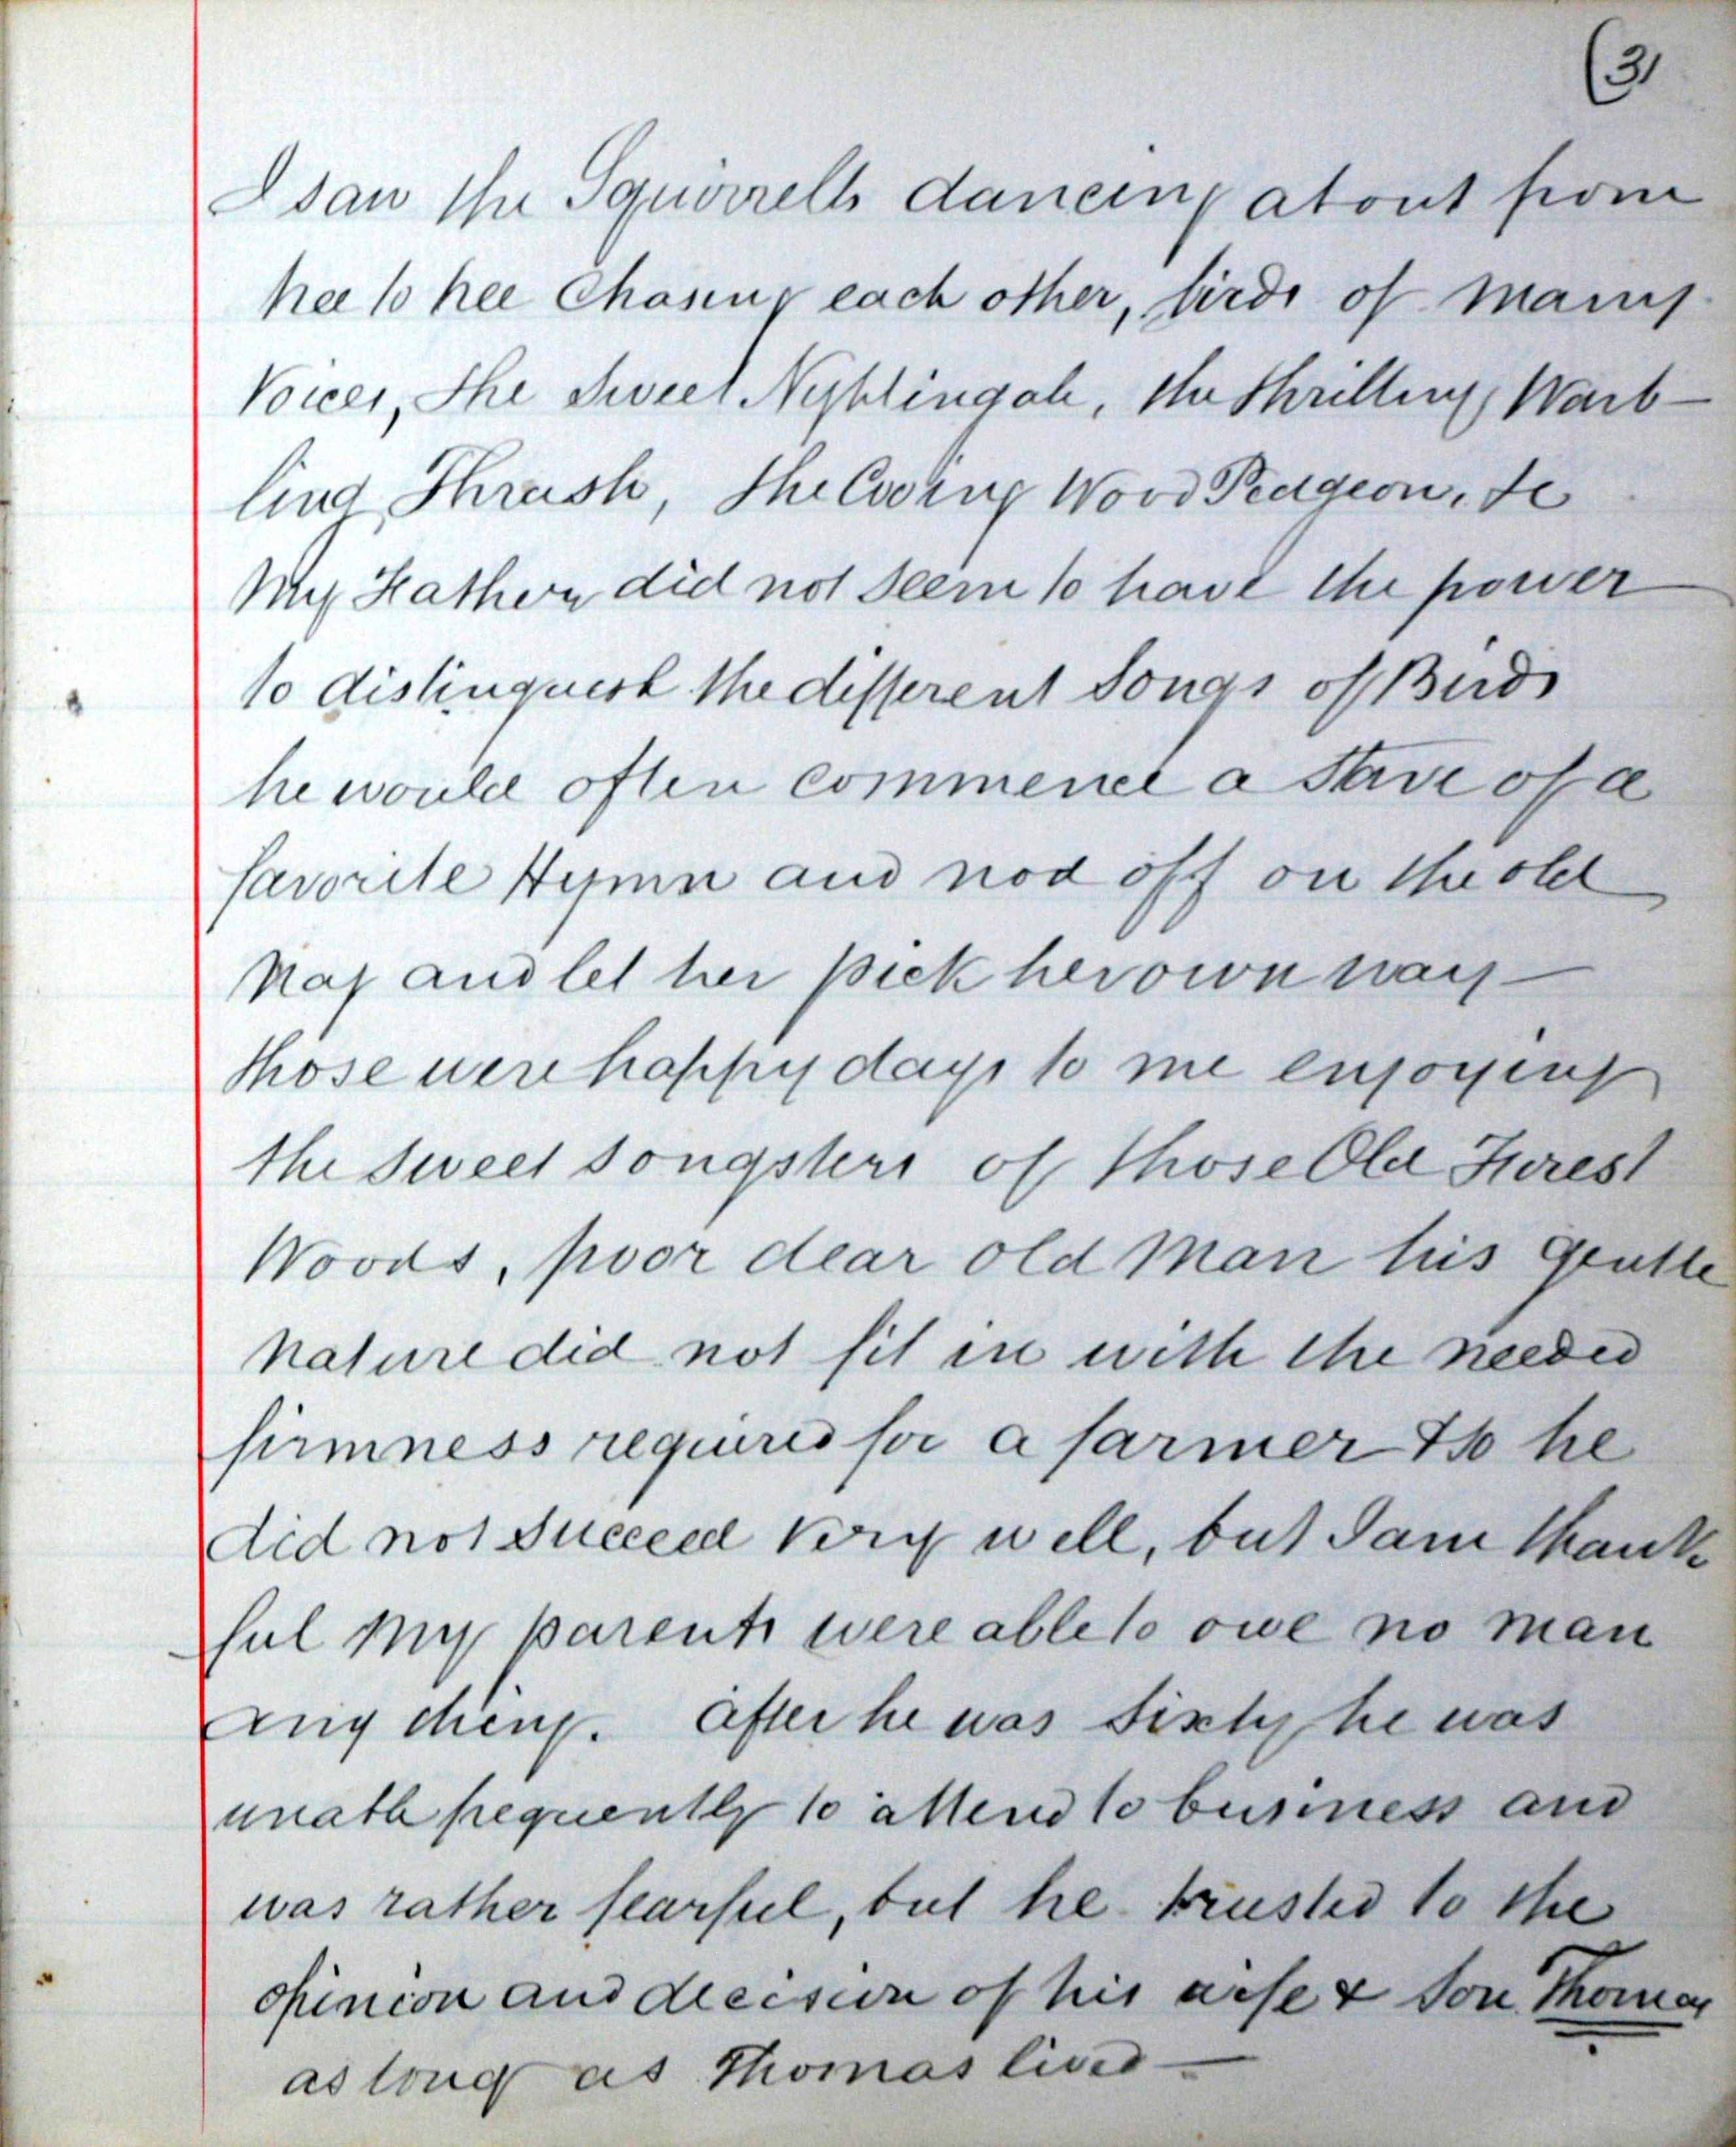 (3)
I saw the Squirrells dancing about from
tree to tree Chasing each other, birds of many
Voices, the Sweet Nightingale, the thrilling Warb-
ling Thrush, the Cooing Wood Pidgeon, &c
My Father did not seem to have the power
to distinguish the different Songs of Birds
he would often commence a Stave of a
favorite Hymn and nod off on the old
Nag and let her pick her own way—
those were happy days to me enjoying
the sweet songsters of those Old Forest
Woods, poor dear old man his gentle
nature did not fit in with the needed
firmness required for a farmer & so he
did not succeed very well, but I am thank-
ful my parents were able to owe no man
any thing. After he was Sixty he was
unable frequently to attend to business and
was rather fearful, but he trusted to the
opinion and decision of his wife & Son Thomas
as long as Thomas lived—